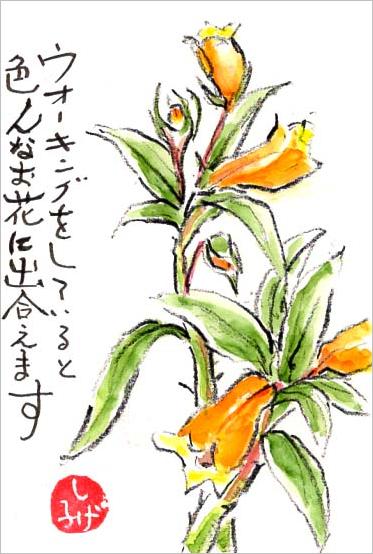 ウオーキングをしていると
色んなお花に出合えます
しげ子